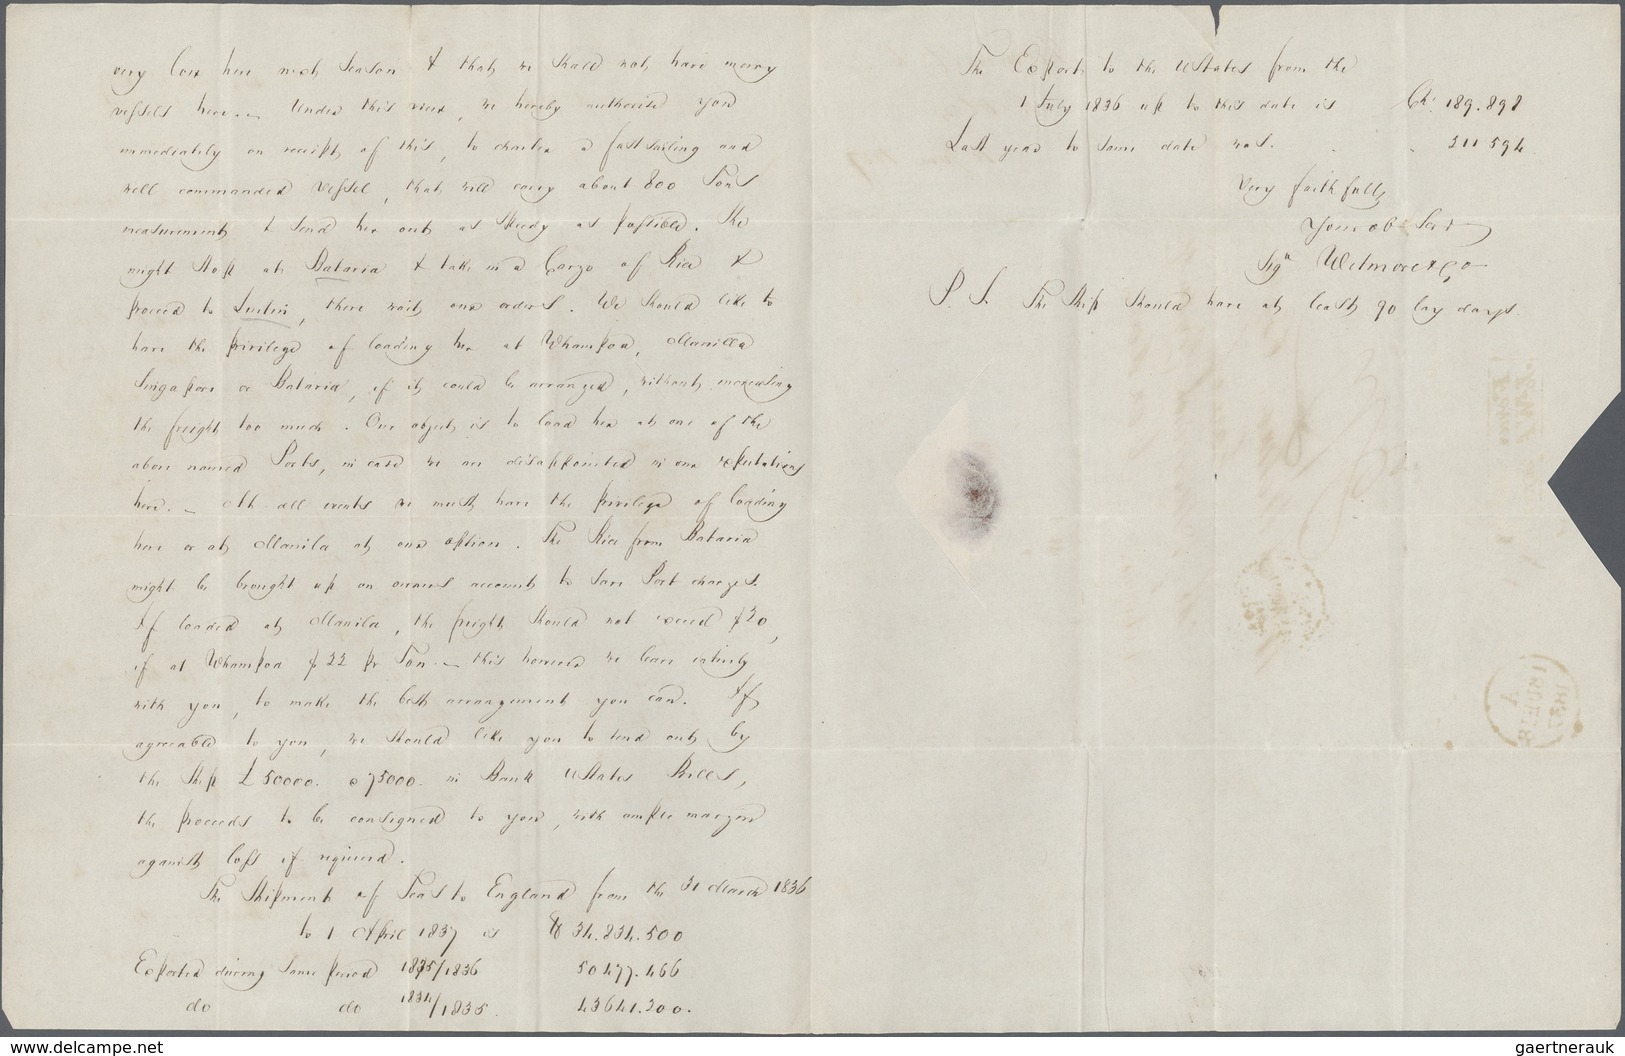 very low here next Season & that we shall not have many
vessels here. — Under this view, we hereby authorise you
immediately on receipt of this, to charter a fast sailing and
well commanded Vessel, that will carry about 800 Tons
measurement & send her out as speedy as possible. She
might stop at Batavia & take in a Cargo of Rice &
proceed to Lintin, there wait our orders. We should like to
have the privilege of loading her at Whampoa, Manilla
Singapore or Batavia, if it could be arranged, without increasing
the freight too much. Our object is to load her at one of the
above named Ports, in case we are disappointed in our expectations
here. — At all events we must have the privilege of loading
here or at Manila at our option. The Rice from Batavia
might be brought up on owners account to save Port charges.
If loaded at Manila, the freight should not exceed $20,
if at Whampoa $22 pr Ton. — this however we leave entirely
with you, to make the best arrangement you can. If
agreeable to you, we should like you to send out by
the Ship £50000. o 75000. in Bank UStates Bills,
the proceeds to be consigned to you, with ample margin
against loss if required.
The Shipment of Teas to England from the 31 March 1836
to 1 April 1837 is lb 34.834.500
Exported during same period 1835/1836 50477.466
do do 1834/1835. 43641.200.
The Exports to the UStates from the
1 July 1836 up to this date is Ch: 189.898
Last year to same date was. . . 211 594.
Very faithfully
Your ob Serv
Sigd Wetmore & Co
P. S. The Ship should have at least 90 lay days.
1837
A
gaertnerauk
www.delcampe.net